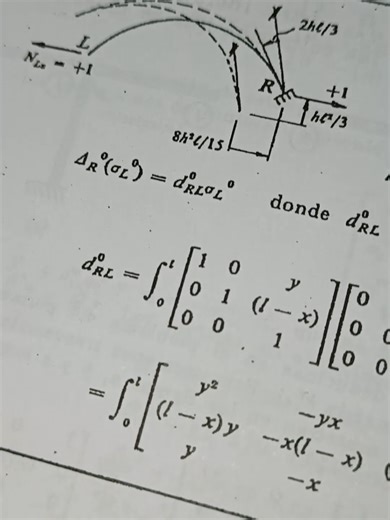 2hl/3
L
N_{Lx} = +1
R
+1
hl²/3
8h²l/15
Δ_R⁰(σ_L⁰) = d⁰_{RL}σ_L⁰ donde d⁰_{RL}
d⁰_{RL} = ∫₀ˡ [1 0 y [0
0 1 (l − x) 0 0
0 0 1] 0 0
= ∫₀ˡ [y² −yx
(l − x)y −x(l − x) (
y −x